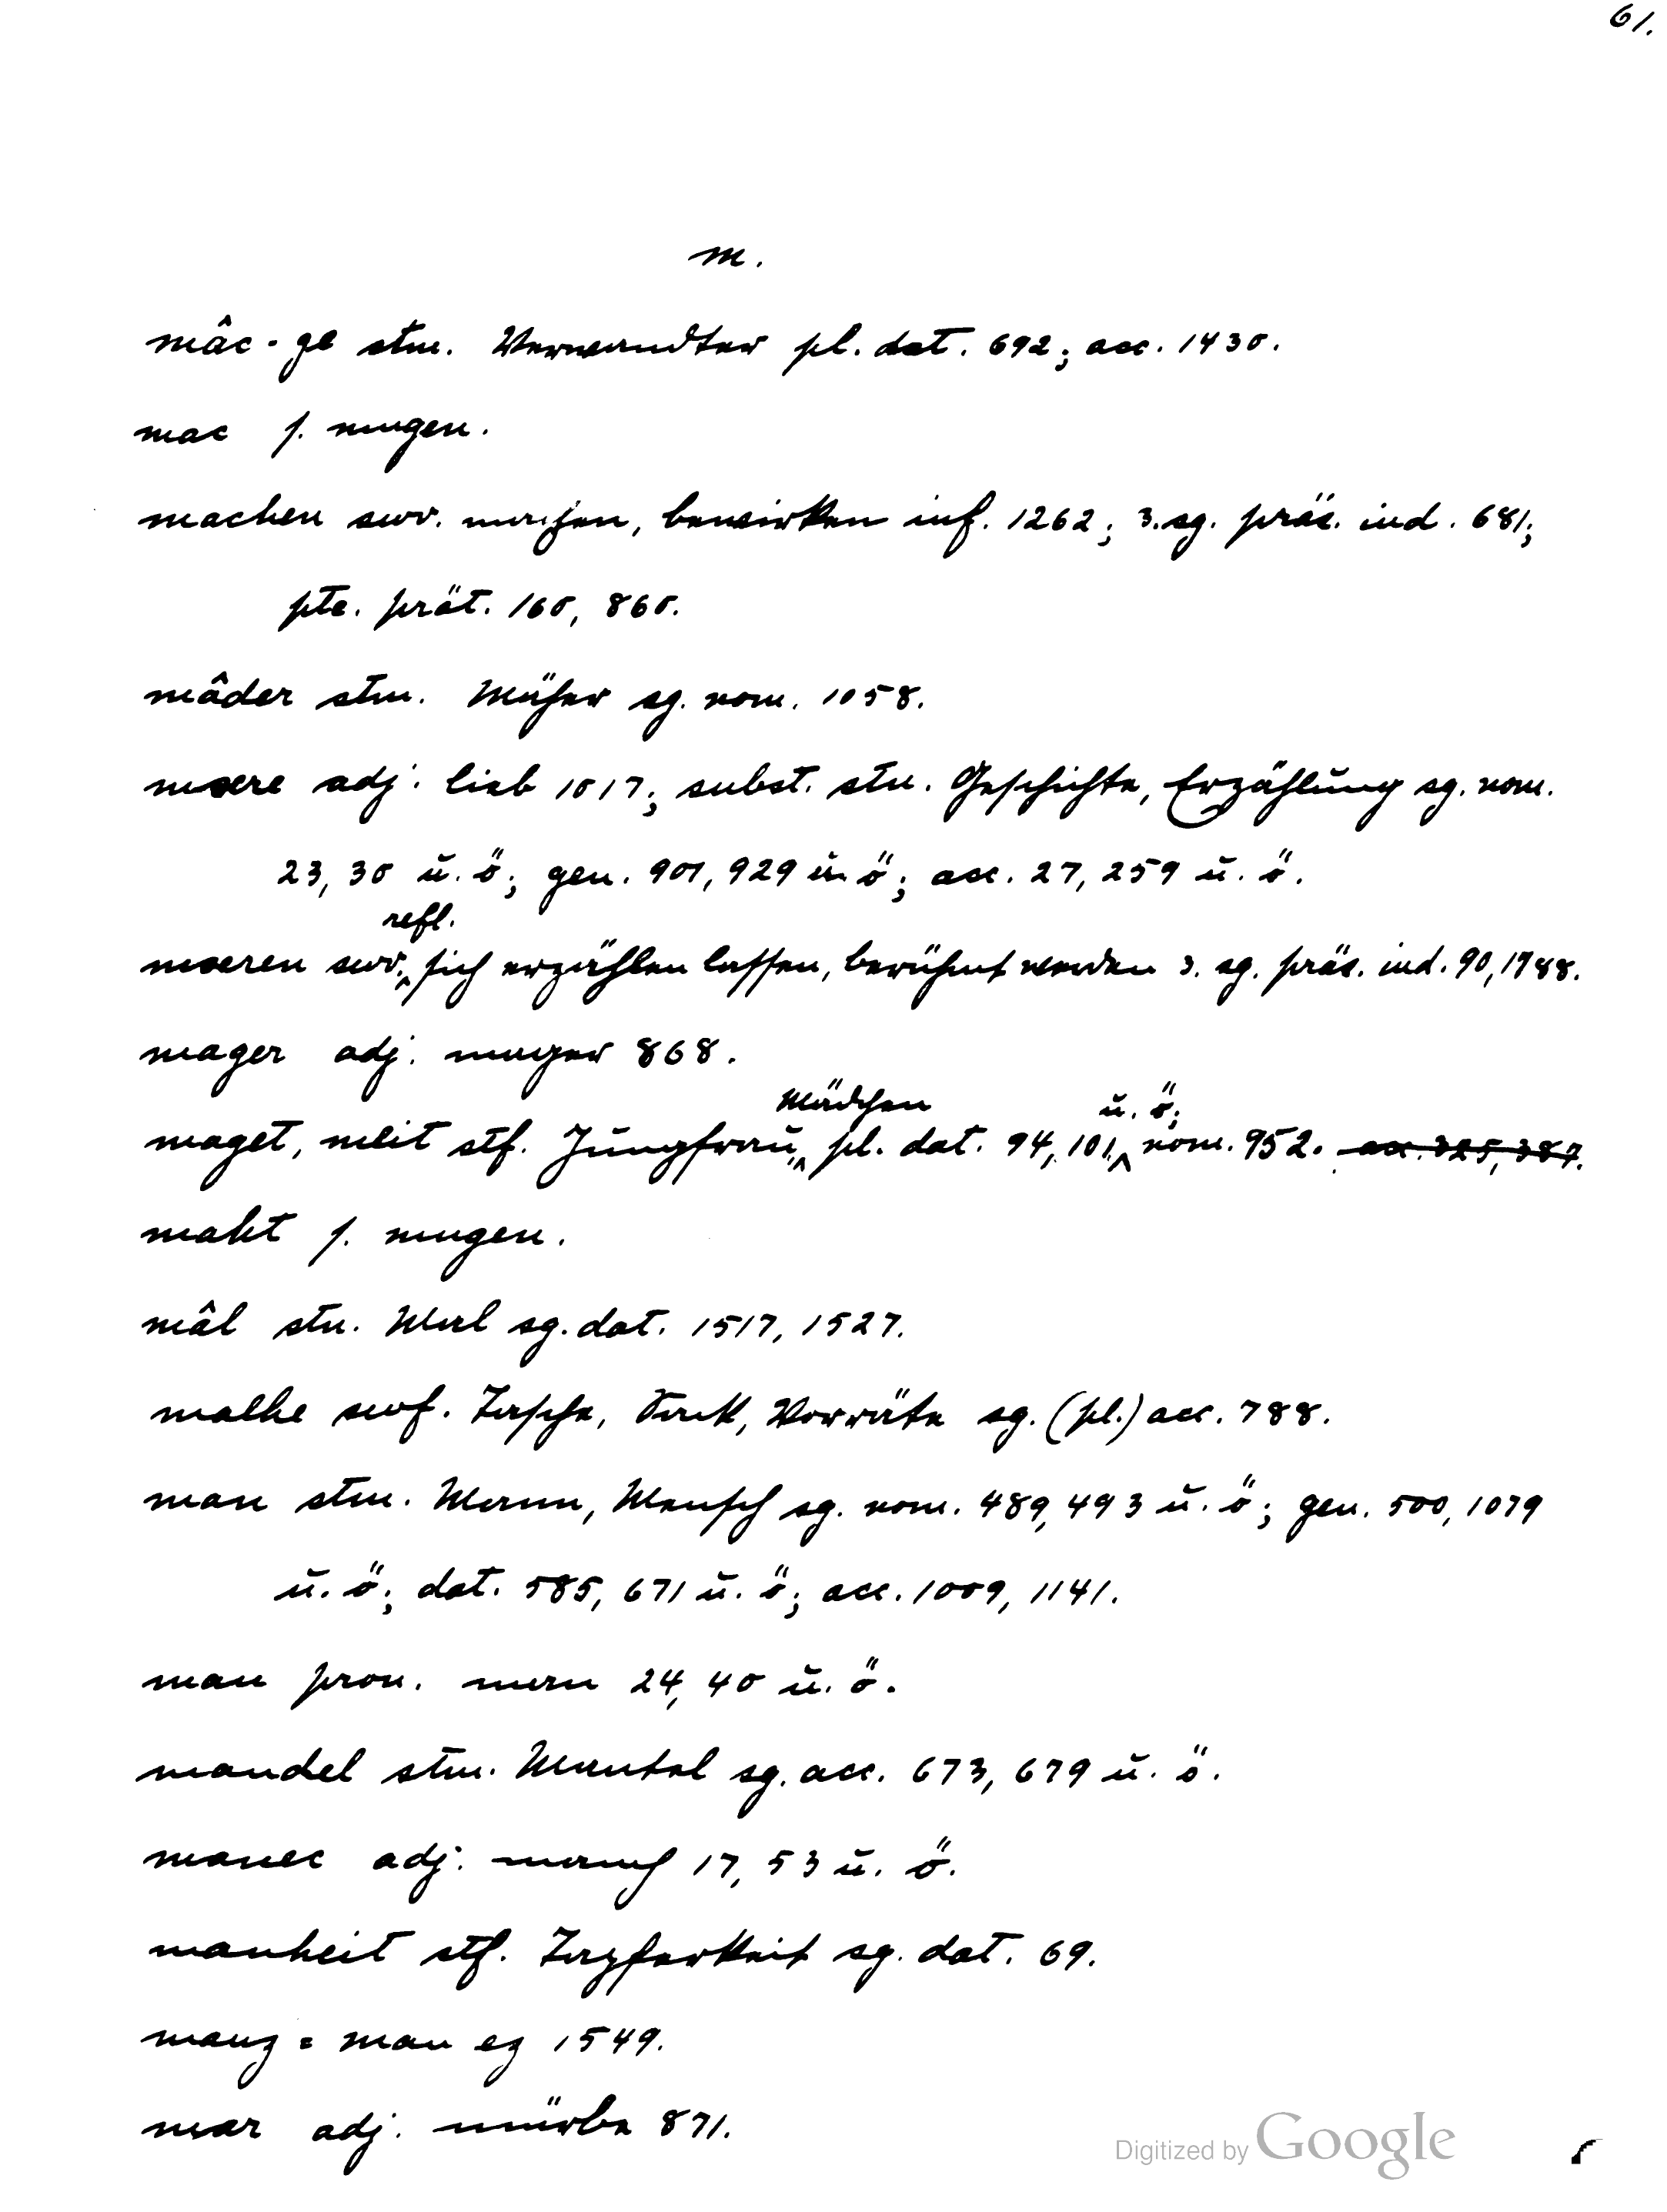 61.
m.
mâc-ge stm. Verwandter pl. dat. 692; acc. 1430.
mac s. mugen.
machen swv. machen, bewirken inf. 1262; 3. sg. präs. ind. 681;
ptc. prät. 160, 860.
mâder stm. Mäher sg. nom. 1058.
mære adj. lieb 1017; subst. stn. Geschichte, Erzählung sg. nom.
23, 30 u. ö; gen. 901, 929 u. ö; acc. 27, 259 u. ö.
refl.
mæren swv. ‸ sich erzählen lassen, berühmt werden 3. sg. präs. ind. 90, 1788.
mager adj. mager 868.
Mädchen u. ö;
maget, meit stf. Jungfrau, ‸ pl. dat. 94, 101, ‸ nom. 952. acc. 325, 387.
maht s. mugen.
mâl stn. Mal sg. dat. 1517, 1527.
malhe swf. Tasche, Sack, Vorräte sg. (pl.) acc. 788.
man stm. Mann, Mensch sg. nom. 489, 493 u. ö; gen. 500, 1079
u. ö; dat. 585, 671 u. ö; acc. 1009, 1141.
man pron. man 24, 40 u. ö.
mandel stm. Mantel sg. acc. 673, 679 u. ö.
manec adj. manch 17, 53 u. ö.
manheit stf. Tapferkeit sg. dat. 69.
manz = man ez 1549.
mar adj. mürbe 871.
Digitized by Google